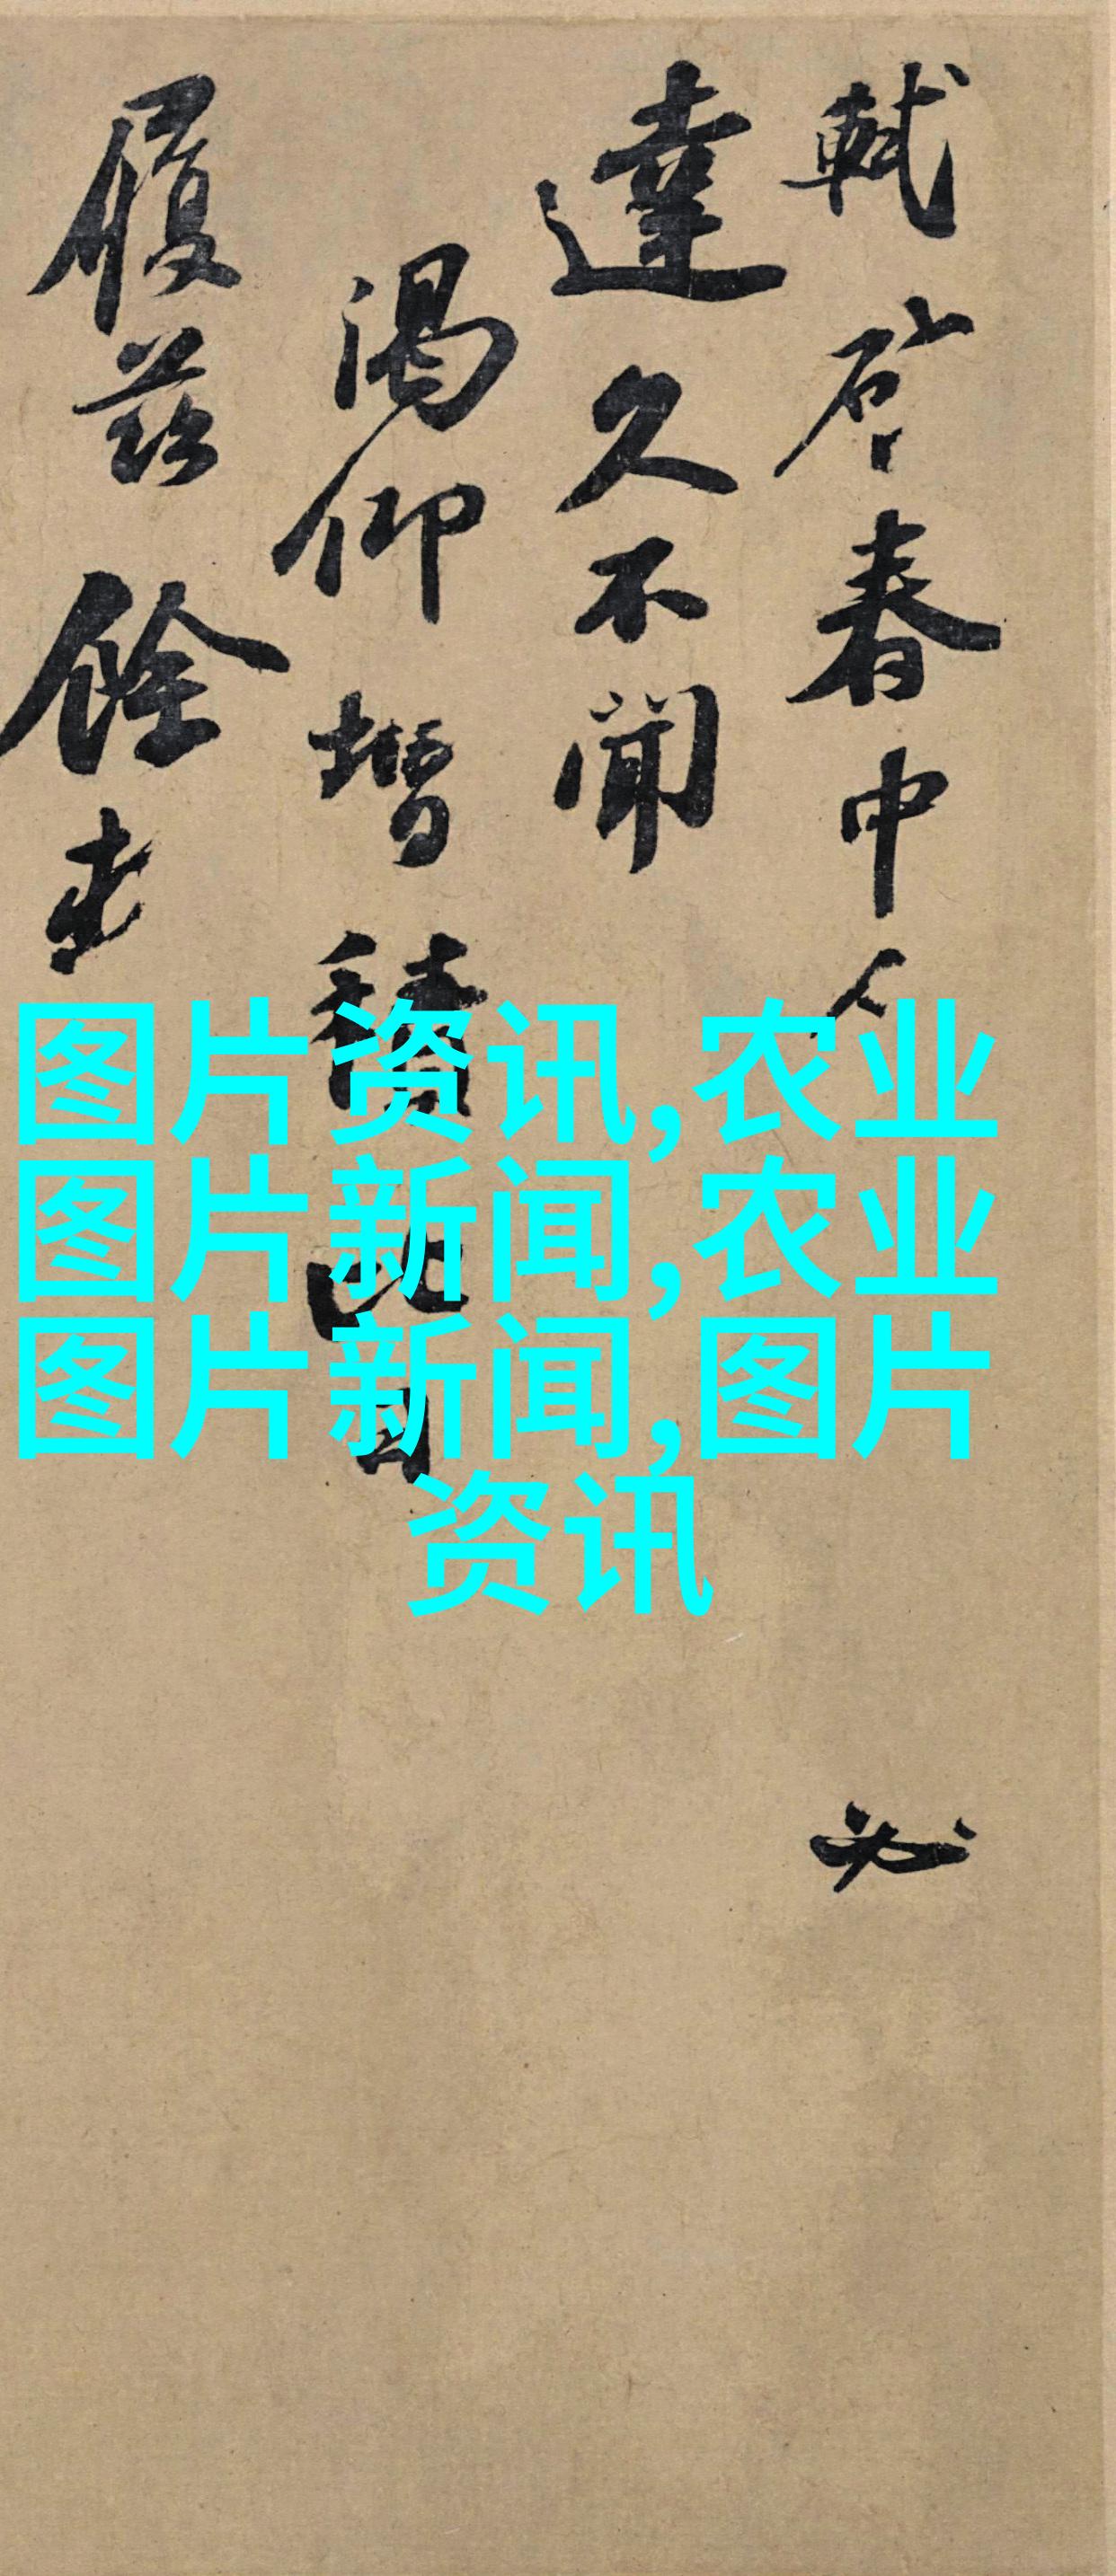 軾啓春中人必
達久不聞
渴仰增積比日
履茲餘
图片资讯,农业
图片新闻,农业
图片新闻,图片
资讯